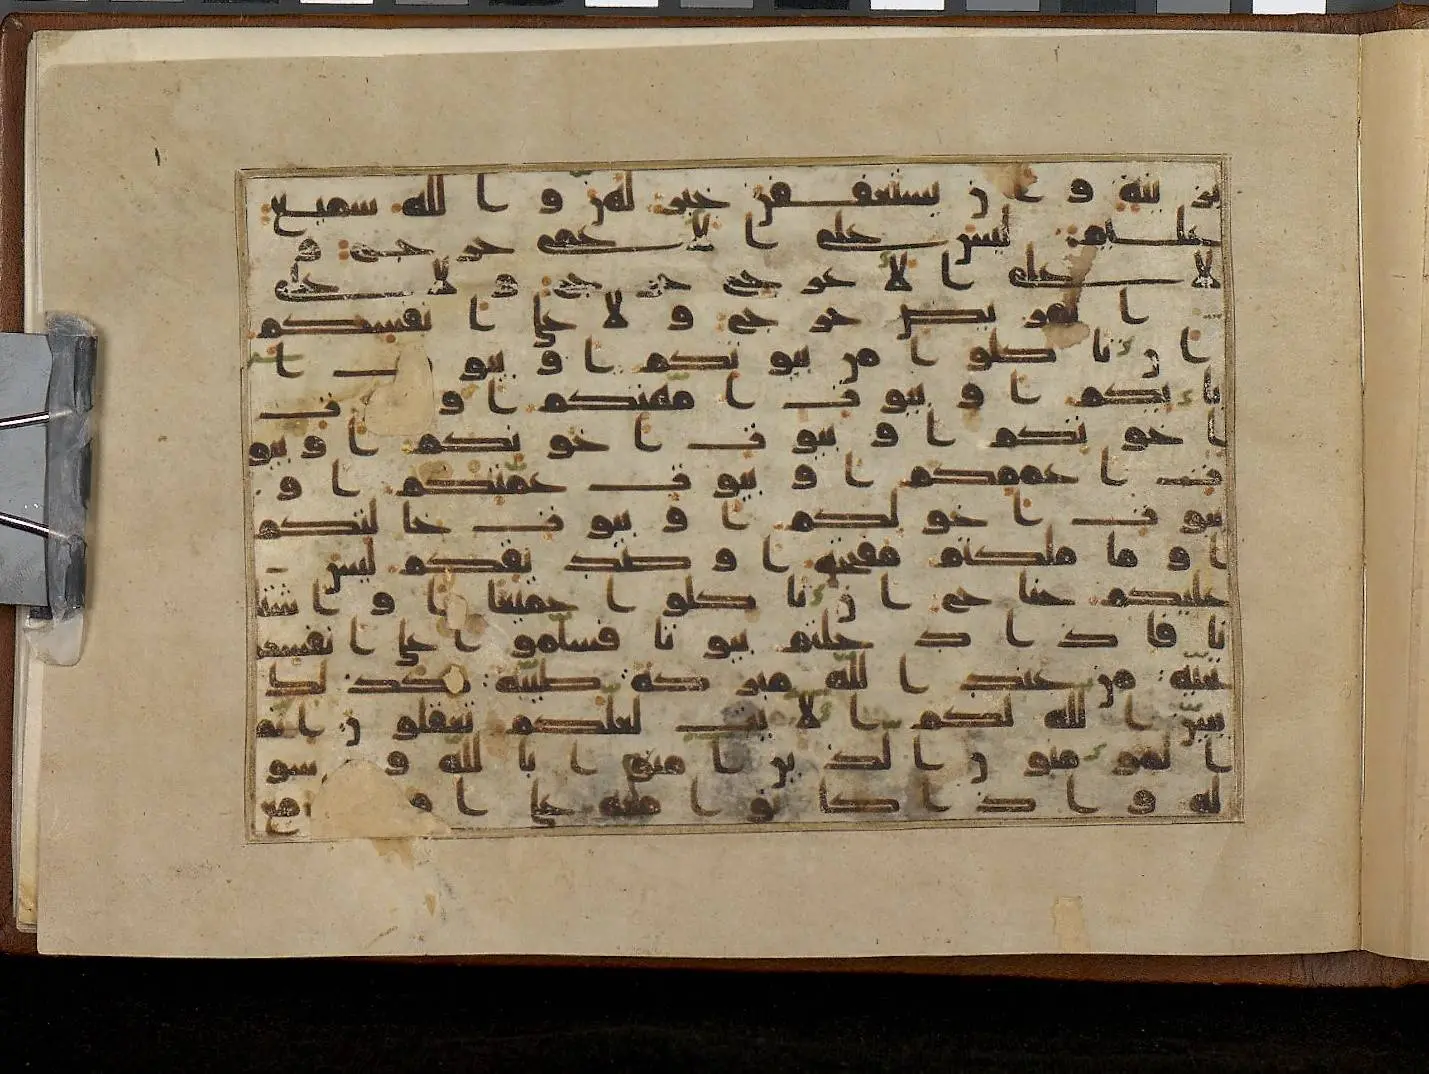 ينة و ا ن يستعففن خير لهن و ا لله سميع
عليم ليس على ا لا عمى حر ج و
لا على ا لا عر ج حر ج و لا على
ا لمر يض حر ج و لا على ا نفسكم
ا ن تا كلو ا من بيو تكم ا و بيو ت ا
با ئكم ا و بيو ت ا مهتكم ا و بيو ت
ا خو نكم ا و بيو ت ا خو تكم ا و بيو
ت ا عممكم ا و بيو ت عمتكم ا و
بيو ت ا خو لكم ا و بيو ت خا لتكم
ا و ما ملكتم مفتحه ا و صد يقكم ليس
عليكم جنا ح ا ن تا كلو ا جميعا ا و ا شتا
تا فا ذ ا د خلتم بيو تا فسلمو ا على ا نفسكم
تحية من عند ا لله مبر كة طيبة كذ لك
يبين ا لله لكم ا لا يت لعلكم تعقلو ن ا نما
ا لمؤ منو ن ا لذ ين ا منو ا با لله و ر سو
له و ا ذ ا كا نو ا معه على ا مر جامع